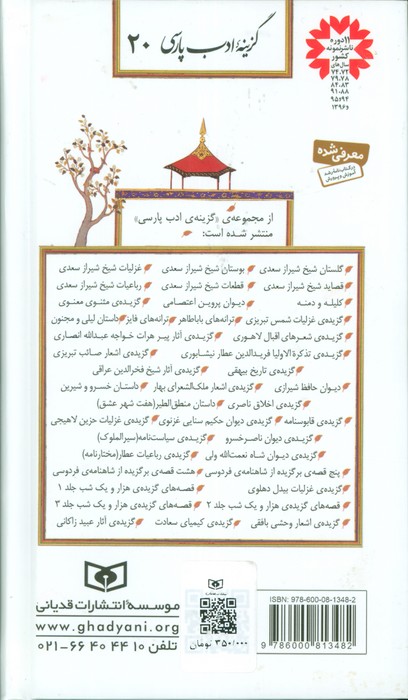 گزینهٔ ادب پارسی ۲۰
۱۱ دوره
ناشر نمونه
کشور
سال‌های
۷۲-۷۴
۷۸-۷۹
۸۳-۸۴
۸۸-۹۱
۹۴و۹۵
و۱۳۹۶
معرفی شده
از مجموعه‌ی «گزینه‌ی ادب پارسی»
منتشر شده است:
گلستان شیخ شیراز سعدی بوستان شیخ شیراز سعدی غزلیات شیخ شیراز سعدی
قصاید شیخ شیراز سعدی قطعات شیخ شیراز سعدی رباعیات شیخ شیراز سعدی
کلیله و دمنه دیوان پروین اعتصامی گزیده‌ی مثنوی معنوی
گزیده‌ی غزلیات شمس تبریزی ترانه‌های باباطاهر ترانه‌های فایز داستان لیلی و مجنون
گزیده‌ی شعرهای اقبال لاهوری گزیده‌ی آثار پیر هرات خواجه عبدالله انصاری
گزیده‌ی تذکرة الاولیا فریدالدین عطار نیشابوری گزیده‌ی اشعار صائب تبریزی
گزیده‌ی تاریخ بیهقی گزیده‌ی آثار شیخ فخرالدین عراقی
دیوان حافظ شیرازی گزیده‌ی اشعار ملک‌الشعرای بهار داستان خسرو و شیرین
گزیده‌ی اخلاق ناصری داستان منطق‌الطیر (هفت شهر عشق)
گزیده‌ی قابوسنامه گزیده‌ی دیوان حکیم سنایی غزنوی گزیده‌ی غزلیات حزین لاهیجی
گزیده‌ی دیوان ناصرخسرو گزیده‌ی سیاست‌نامه (سیرالملوک)
گزیده‌ی دیوان شاه نعمت‌الله ولی گزیده‌ی رباعیات عطار (مختارنامه)
پنج قصه‌ی برگزیده از شاهنامه‌ی فردوسی هشت قصه‌ی برگزیده از شاهنامه‌ی فردوسی
گزیده‌ی غزلیات بیدل دهلوی قصه‌های گزیده‌ی هزار و یک شب جلد ۱
قصه‌های گزیده‌ی هزار و یک شب جلد ۲ قصه‌های گزیده‌ی هزار و یک شب جلد ۳
گزیده‌ی اشعار وحشی بافقی گزیده‌ی کیمیای سعادت گزیده‌ی آثار عبید زاکانی
موسسه انتشارات قدیانی
www.ghadyani.org
تلفن ۱۰ ۴۴ ۴۰ ۶۶-۰۲۱
۳۵۰/۰۰۰ تومان
ISBN: 978-600-08-1348-2
9 786000 813482